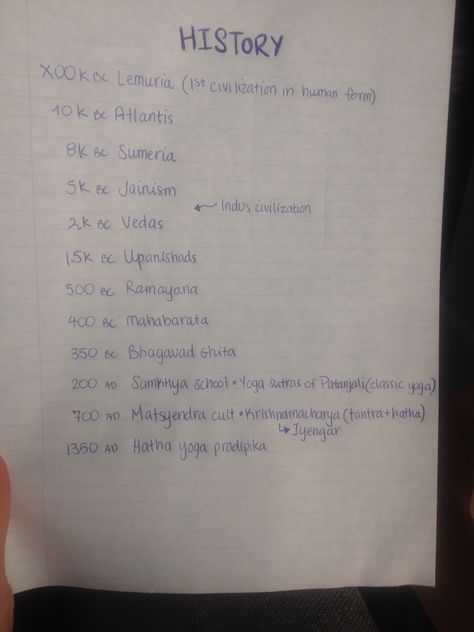 HISTORY
X00K BC Lemuria (1st civilization in human form)
10K BC Atlantis
8K BC Sumeria
5K BC Jainism
← Indus civilization
2K BC Vedas
1.5K BC Upanishads
500 BC Ramayana
400 BC Mahabarata
350 BC Bhagavad Ghita
200 AD Samkhya school • Yoga sutras of Patanjali (classic yoga)
700 AD Matsyendra cult • Krishnamacharya (tantra + hatha)
↳ Iyengar
1350 AD Hatha yoga pradipika